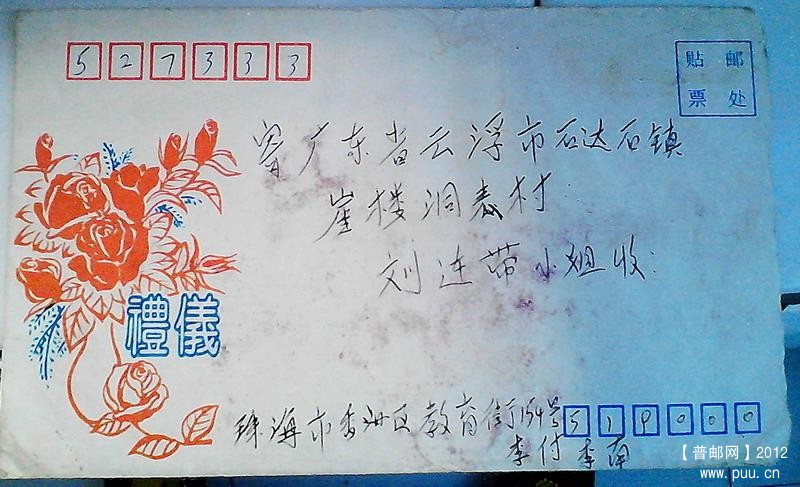 527333
贴 邮
票 处
寄广东省云浮市石达石镇
崖楼洞表村
刘连带小姐收:
禮儀
珠海市香洲区教育街154号
519000
李付 李南
【普邮网】2012
www.puu.cn